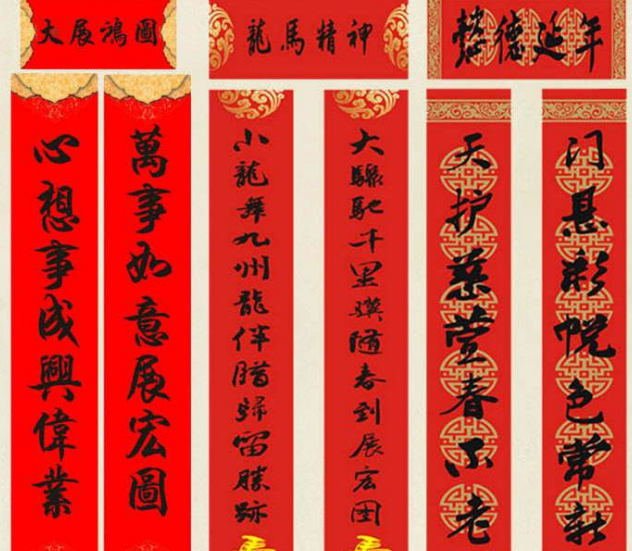 大展鴻圖
龍馬精神
懿德延年
心想事成興偉業
萬事如意展宏圖
小龍舞九州龍伴臘歸留勝跡
大驥馳千里驥隨春到展宏图
天护慈萱春不老
门悬彩帨色常新